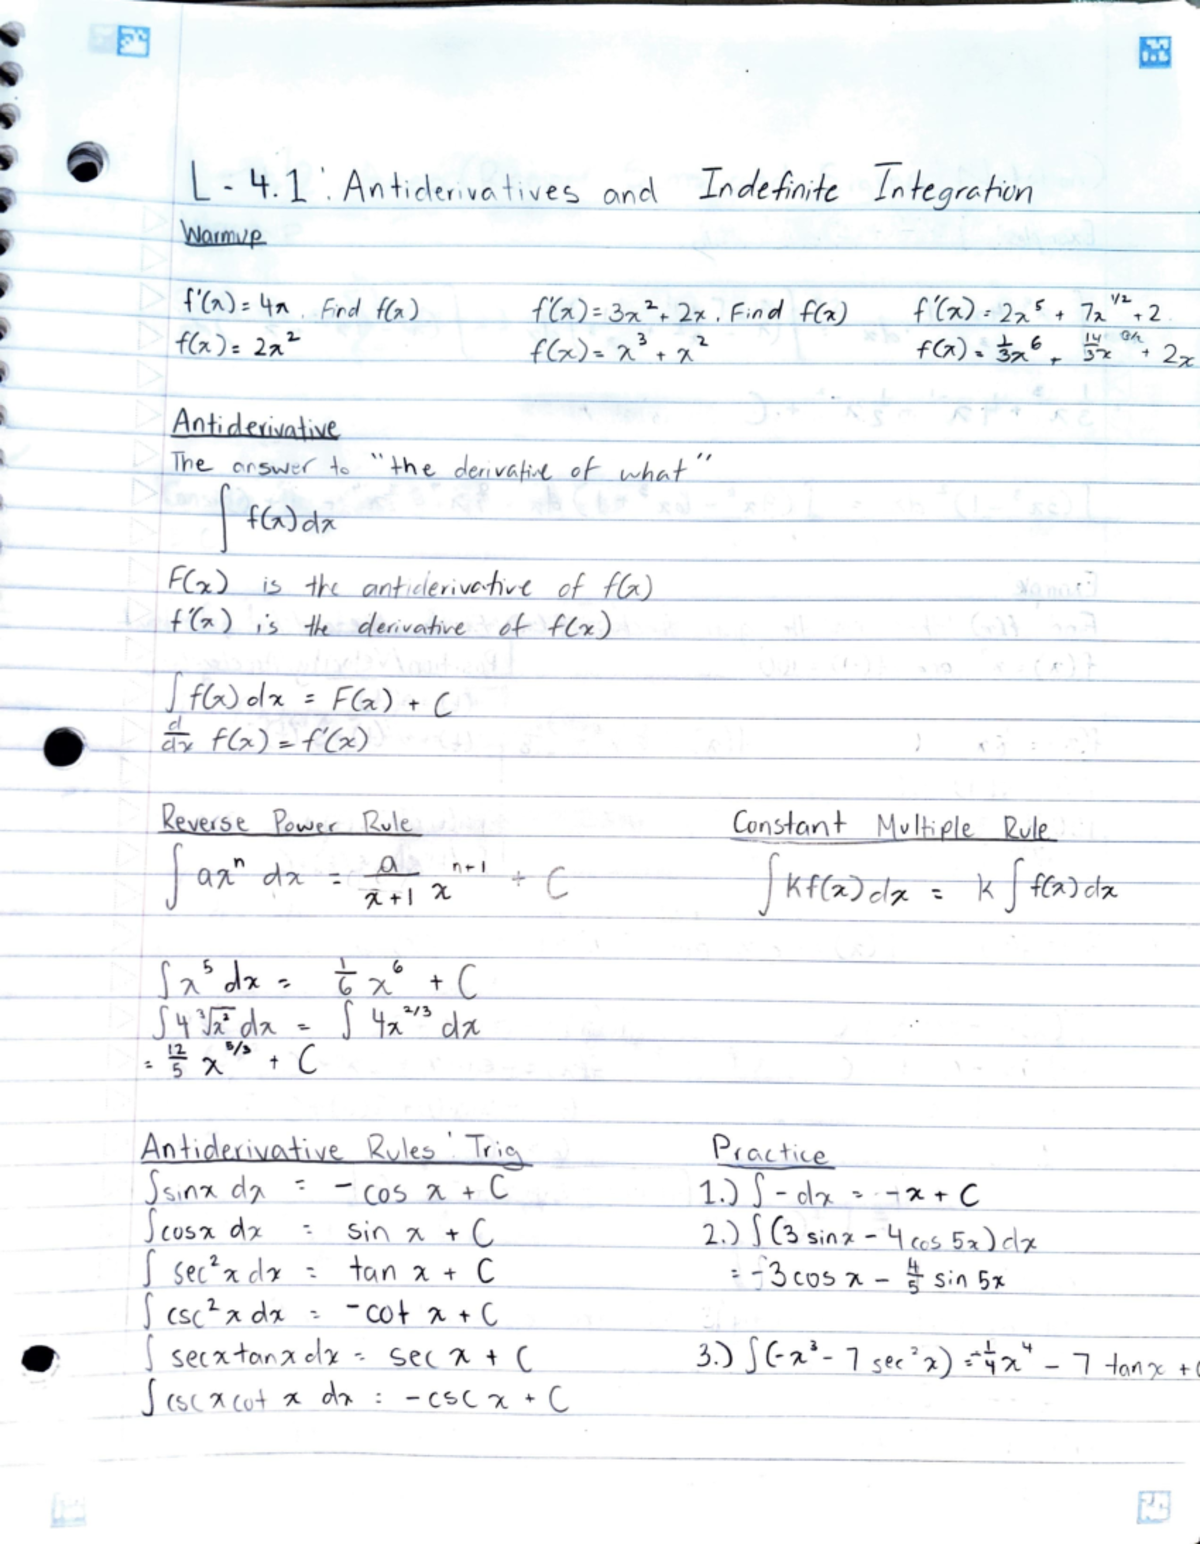 L - 4.1: Antiderivatives and Indefinite Integration
Warmup
f'(x) = 4x. Find f(x)
f(x) = 2x²
f'(x) = 3x² + 2x. Find f(x)
f(x) = x³ + x²
f'(x) = 2x⁵ + 7x^1/2 + 2.
f(x) = 1/3x⁶ + 14/3x^3/2 + 2x
Antiderivative
The answer to "the derivative of what"
∫ f(x) dx
F(x) is the antiderivative of f(x)
f'(x) is the derivative of f(x)
∫ f(x) dx = F(x) + C
d/dx f(x) = f'(x)
Reverse Power Rule
∫ axⁿ dx = a/x+1 x^n+1 + C
Constant Multiple Rule
∫ Kf(x) dx = k ∫ f(x) dx
∫ x⁵ dx = 1/6 x⁶ + C
∫ 4 ³√x² dx = ∫ 4x^2/3 dx
= 12/5 x^5/3 + C
Antiderivative Rules: Trig
∫ sinx dx = -cos x + C
∫ cosx dx = sin x + C
∫ sec²x dx = tan x + C
∫ csc²x dx = -cot x + C
∫ secxtanx dx = sec x + C
∫ cscxcot x dx = -csc x + C
Practice
1.) ∫ - dx = -x + C
2.) ∫ (3 sinx - 4 cos 5x) dx
= -3 cos x - 4/5 sin 5x
3.) ∫ (-x³ - 7 sec²x) = -1/4x⁴ - 7 tanx + C